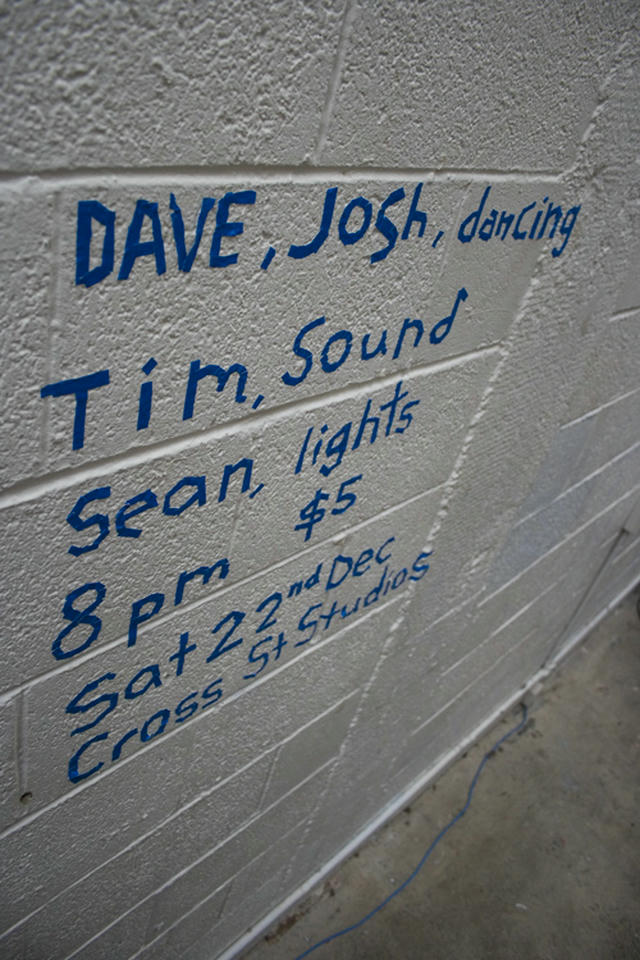 DAVE, Josh, dancing
Tim, Sound
Sean, lights
8pm $5
Sat 22nd Dec
Cross St Studios